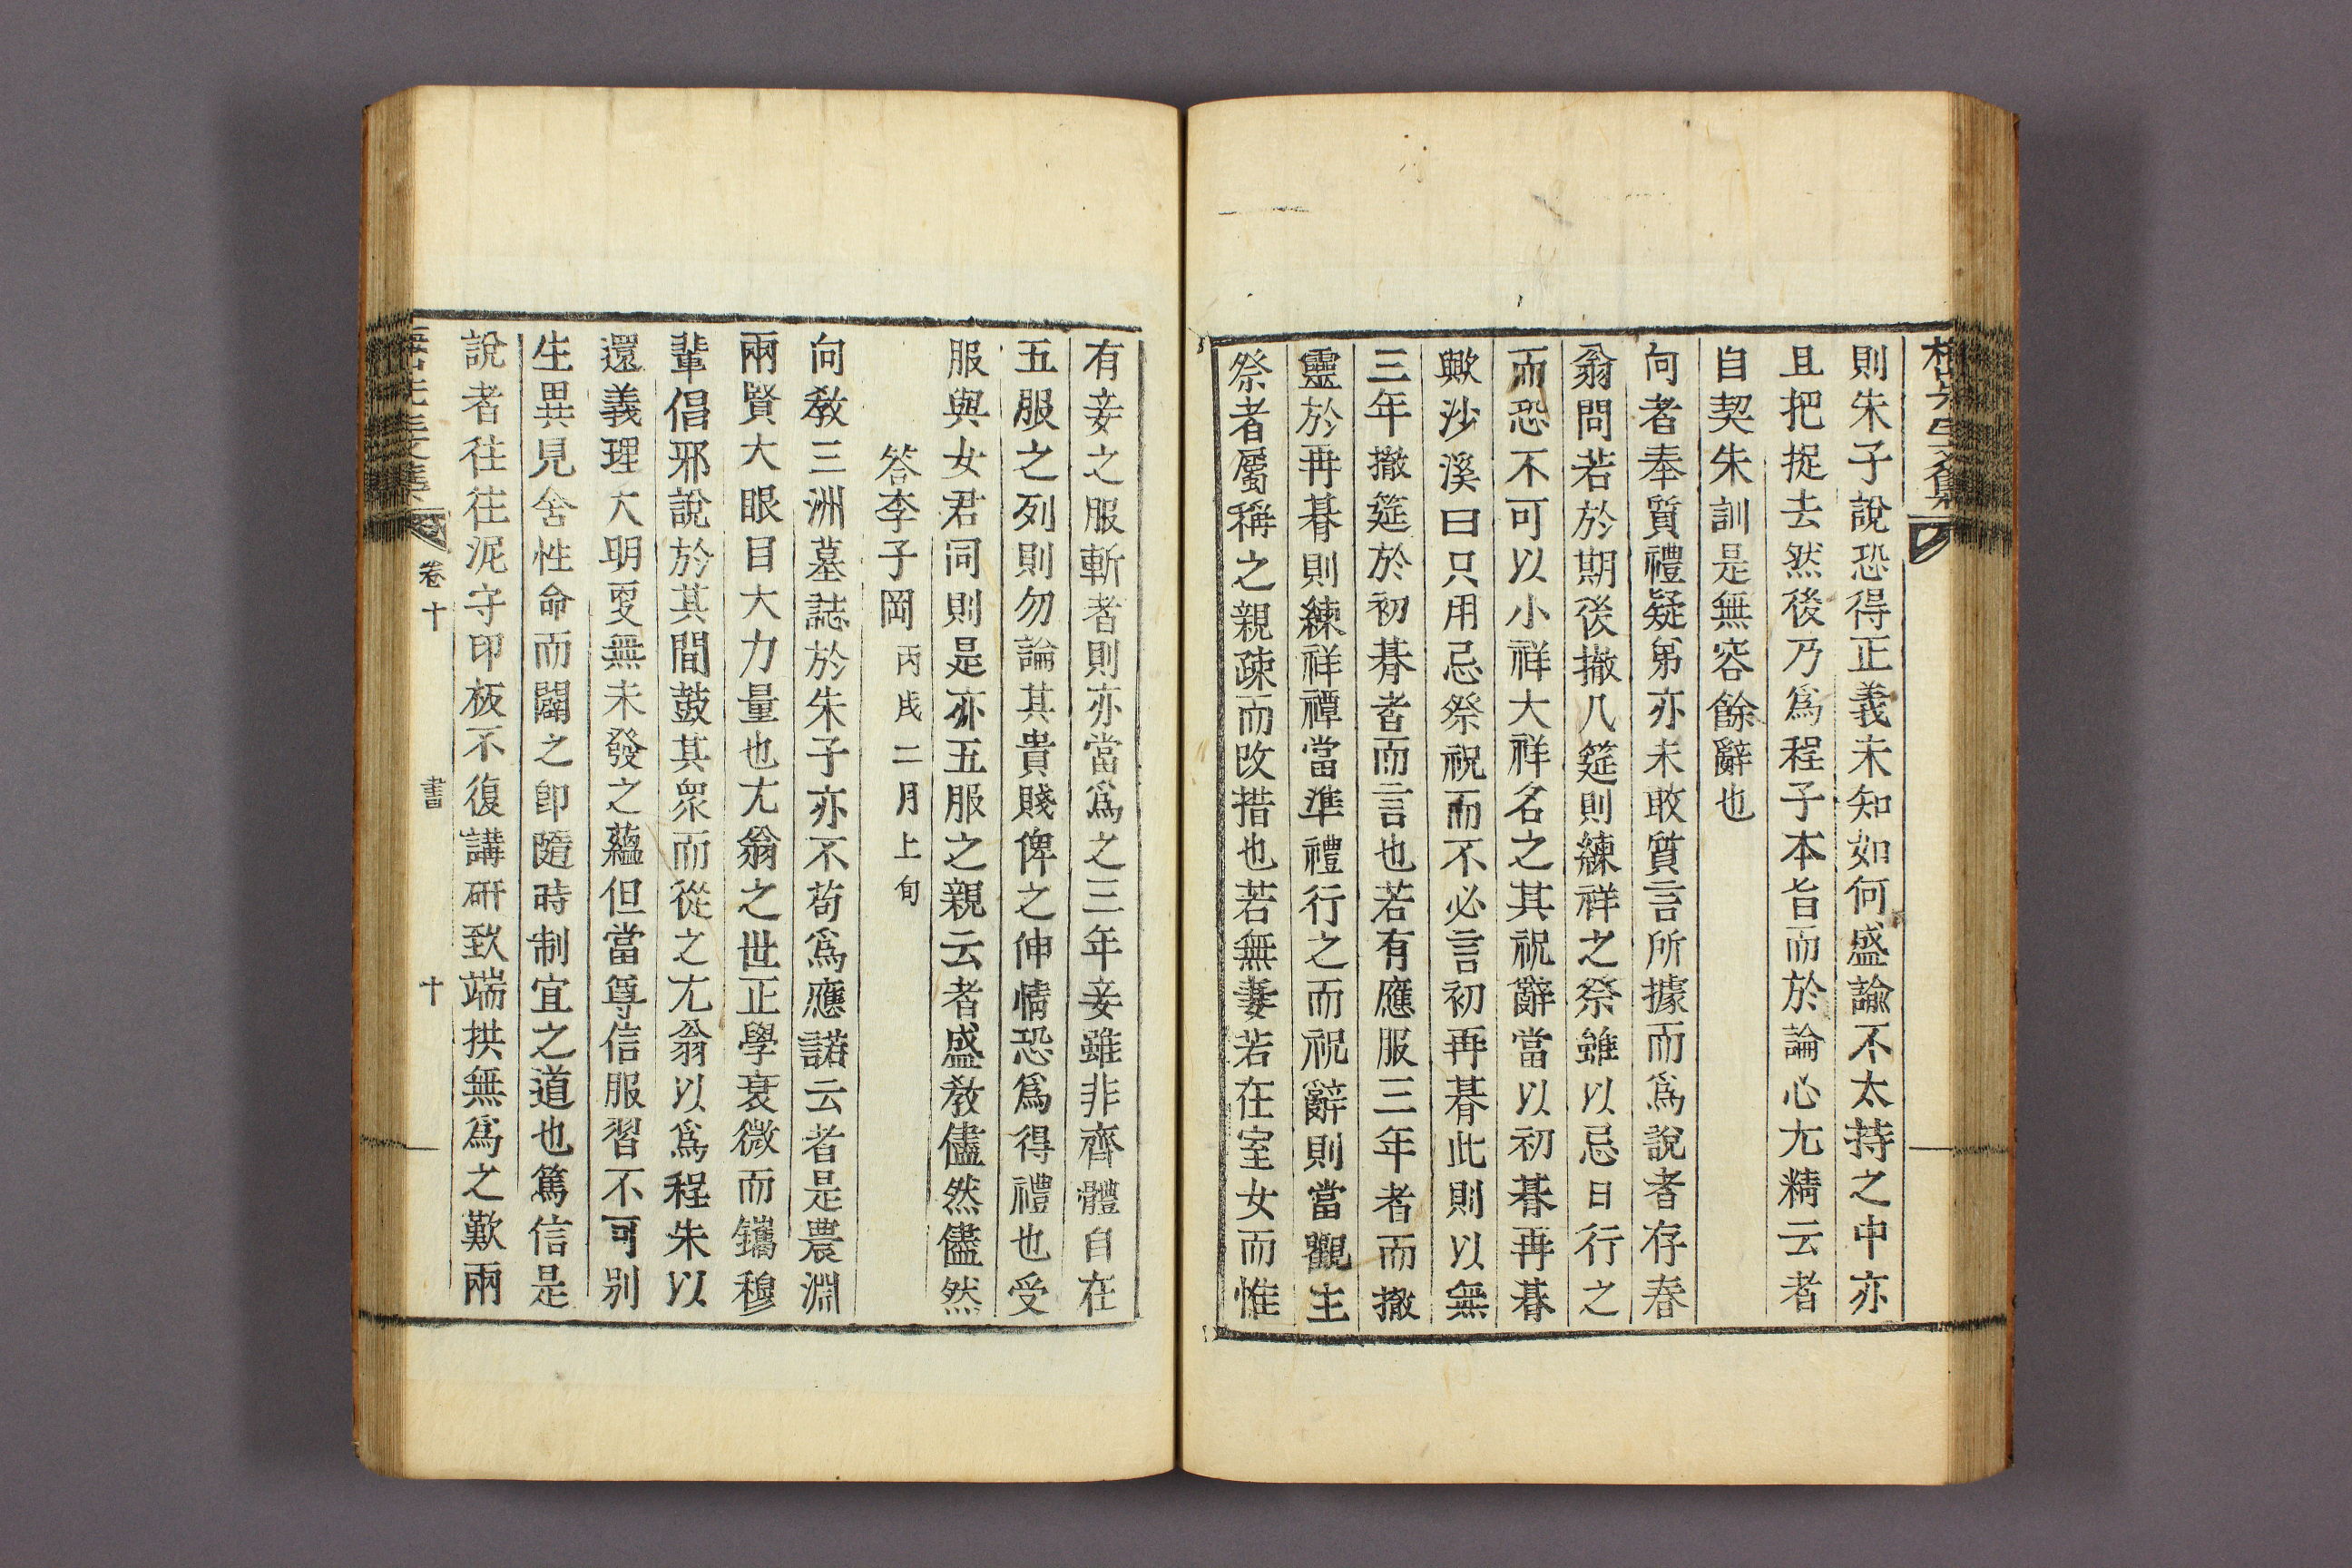 則朱子說恐得正義未知如何盛諭不太持之中亦
且把捉去然後乃爲程子本旨而於論心尤精云者
自契朱訓是無容餘辭也
向者奉質禮疑弟亦未敢質言所據而爲說者存春
翁問若於期後撤几筵則練祥之祭雖以忌日行之
而恐不可以小祥大祥名之其祝辭當以初朞再朞
歟沙溪曰只用忌祭祝而不必言初再朞此則以無
三年撤筵於初朞者而言也若有應服三年者而撤
靈於再朞則練祥禫當準禮行之而祝辭則當觀主
祭者屬稱之親疎而改措也若無妻若在室女而惟
有妾之服斬者則亦當爲之三年妾雖非齊體自在
五服之列則勿論其貴賤俾之伸情恐爲得禮也受
服與女君同則是亦五服之親云者盛敎儘然儘然
答李子岡 丙戌二月上旬
向敎三洲墓誌於朱子亦不苟爲應諾云者是農淵
兩賢大眼目大力量也尤翁之世正學衰微而鑴穆
輩倡邪說於其間鼓其衆而從之尤翁以爲程朱以
還義理大明更無未發之蘊但當尊信服習不可別
生異見舍性命而闢之卽隨時制宜之道也篤信是
說者往往泥守印板不復講硏致端拱無爲之歎兩
卷十 書 十